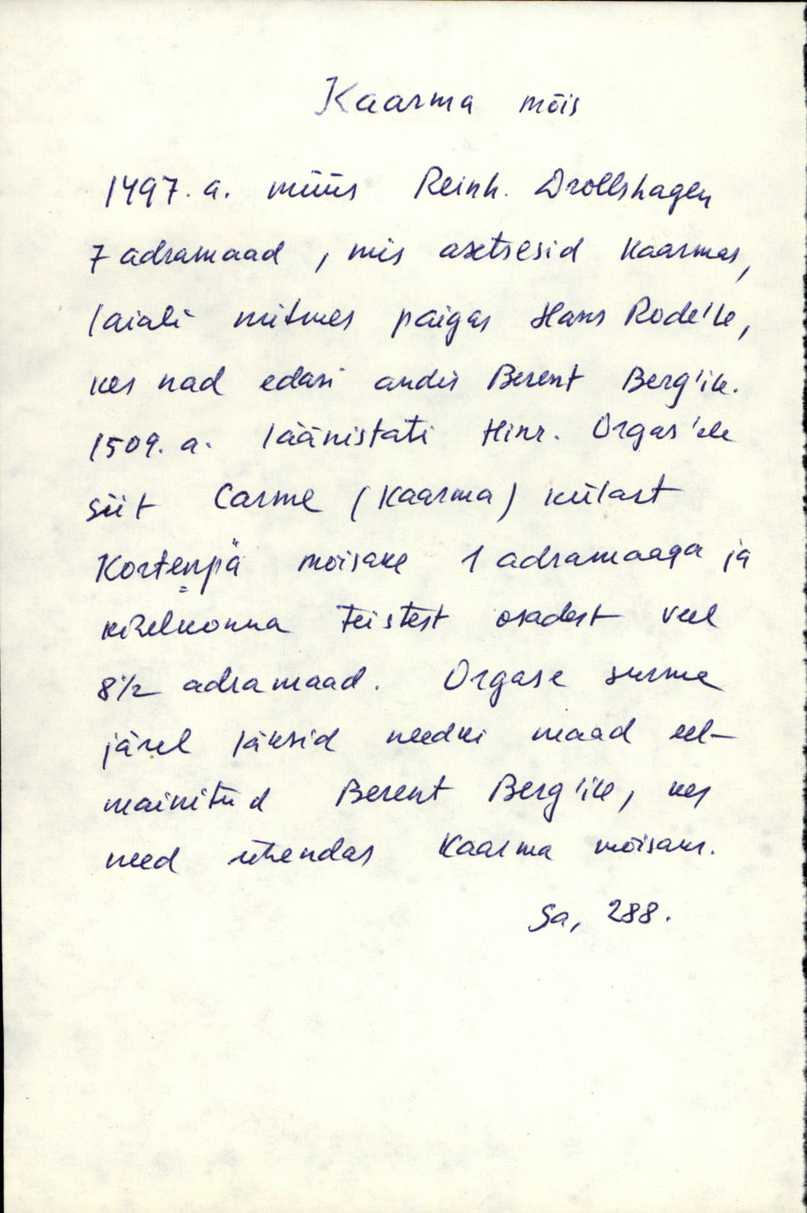 Kaarma mõis
1497. a. müüs Reinh. Drollshagen
7 adramaad, mis asetsesid Kaarmas,
laiali mitmes paigas Hans Rode'le,
kes nad edasi andis Berent Berg'ile.
1509. a. läänistati Hinr. Orgas'ele
siit Carme (Kaarma) külast
Kortenpä mõisake 1 adramaaga ja
kihelkonna teistest osadest veel
8 1/2 adramaad. Orgase surma
järel läksid needki maad eel-
mainitud Berent Berg'ile, kes
need ühendas Kaarma mõisaks.
Sa, 288.